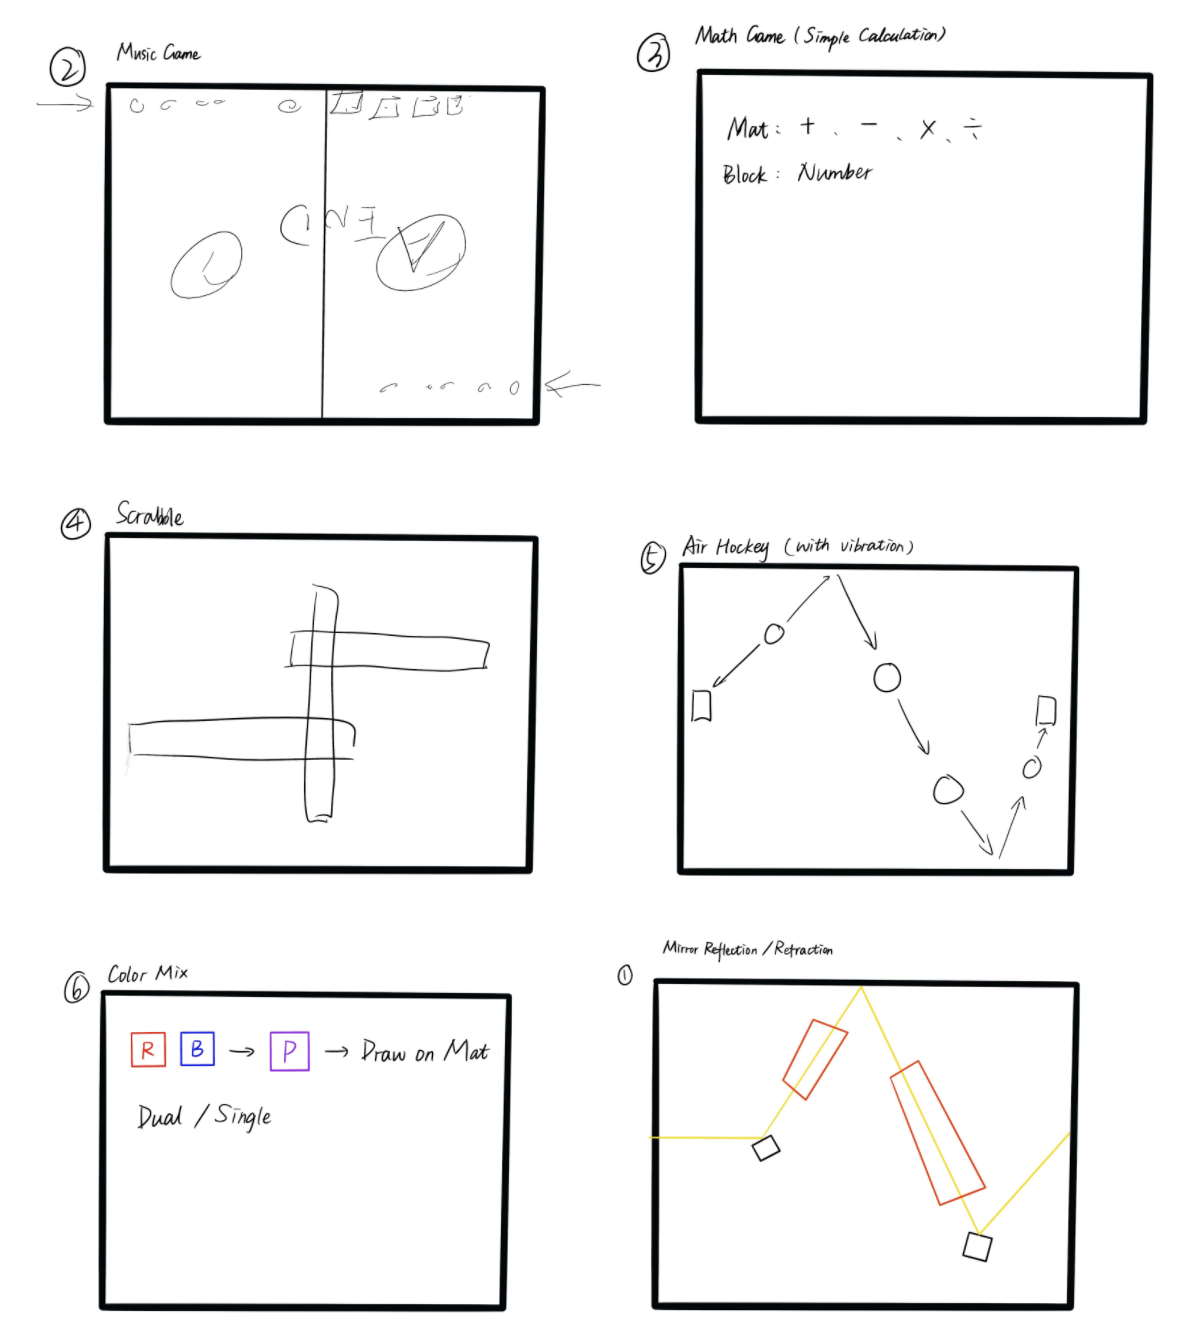 ② Music Game
③ Math Game (Simple Calculation)
Mat: + 、 - 、 × 、 ÷
Block: Number
④ Scrabble
⑤ Air Hockey (with vibration)
⑥ Color Mix
R B → P → Draw on Mat
Dual / Single
① Mirror Reflection / Retraction